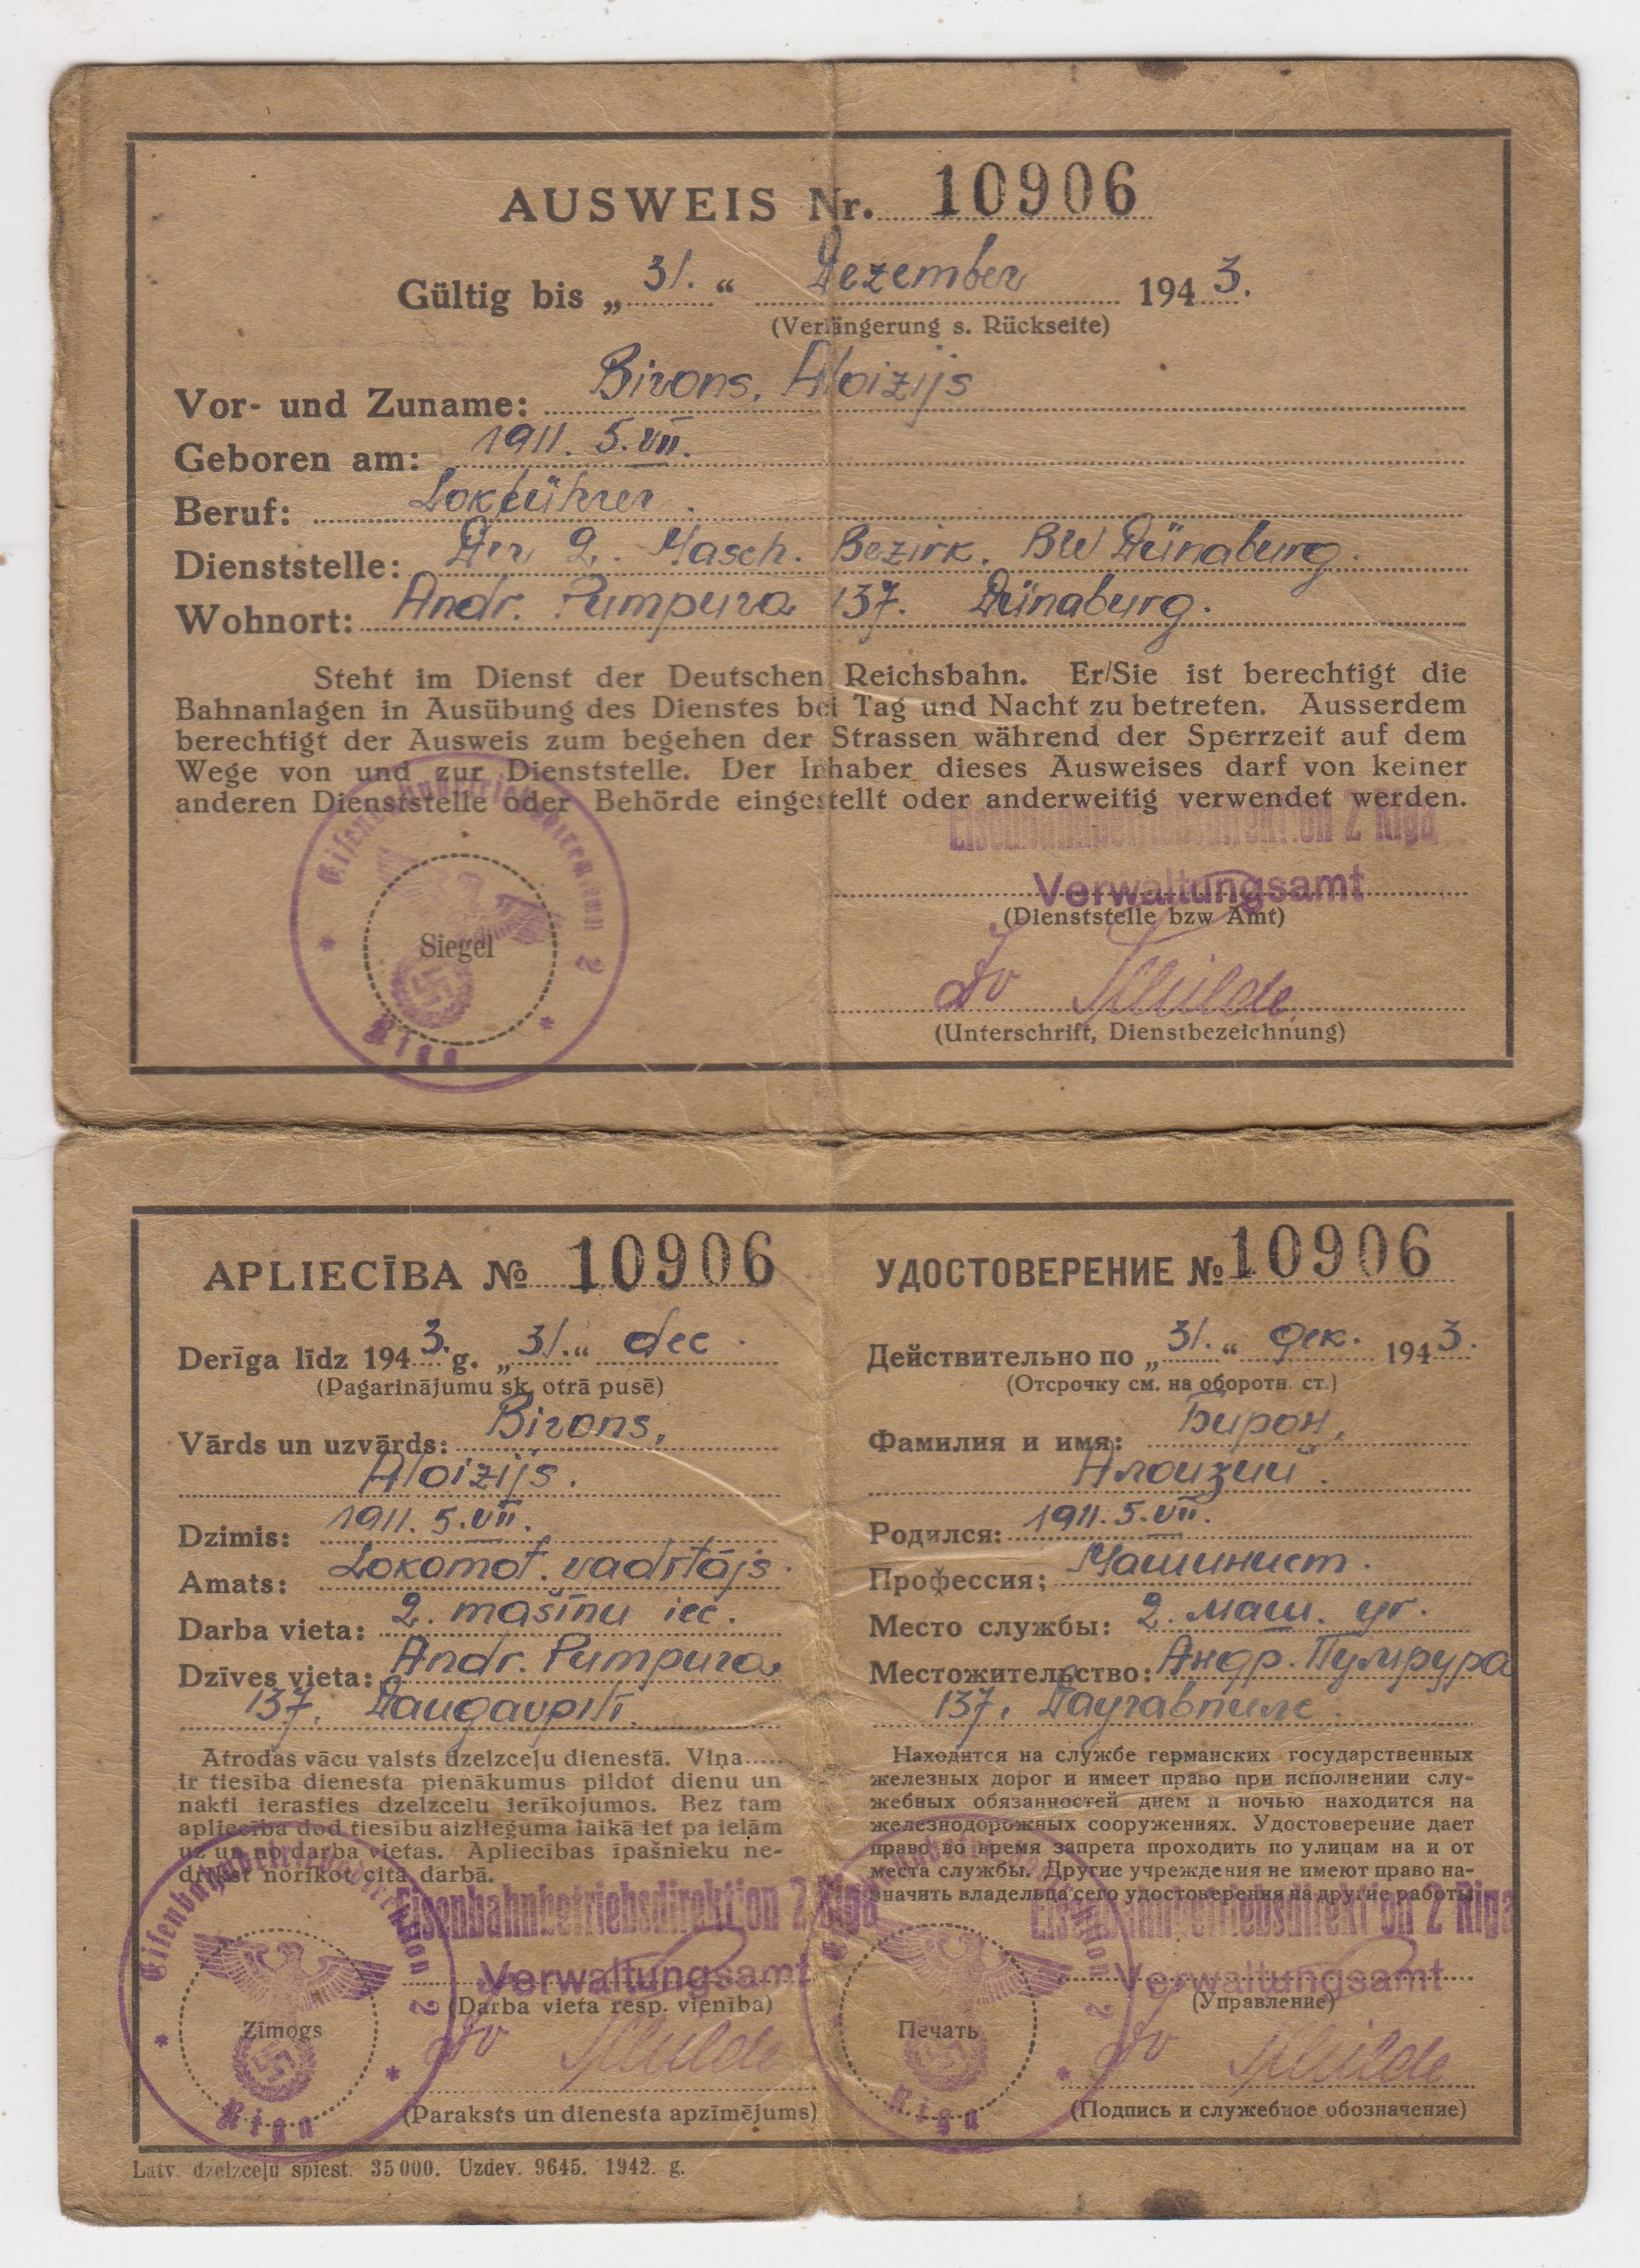 AUSWEIS Nr. 10906
Gültig bis „31.“ Dezember 1943.
(Verlängerung s. Rückseite)
Vor- und Zuname: Birons, Aloizijs
Geboren am: 1911. 5.VII.
Beruf: Lokführer.
Dienststelle: Der 2. Masch. Bezirk. BW Dünaburg.
Wohnort: Andr. Pumpura 137. Dünaburg.
Steht im Dienst der Deutschen Reichsbahn. Er/Sie ist berechtigt die
Bahnanlagen in Ausübung des Dienstes bei Tag und Nacht zu betreten. Ausserdem
berechtigt der Ausweis zum begehen der Strassen während der Sperrzeit auf dem
Wege von und zur Dienststelle. Der Inhaber dieses Ausweises darf von keiner
anderen Dienststelle oder Behörde eingestellt oder anderweitig verwendet werden.
Eisenbahnbetriebsdirektion 2 Riga
Verwaltungsamt
(Dienststelle bzw Amt)
Eisenbahnbetriebsdirektion 2
Siegel
Riga
(Unterschrift, Dienstbezeichnung)
APLIECĪBA № 10906
Derīga līdz 1943. g. „31.“ dec.
(Pagarinājumu sk. otrā pusē)
Vārds un uzvārds: Birons,
Aloizijs.
Dzimis: 1911. 5.VII.
Amats: Lokomot. vadītājs.
Darba vieta: 2. mašīnu iec.
Dzīves vieta: Andr. Pumpura,
137, Daugavpilī.
Atrodas vācu valsts dzelzceļu dienestā. Viņa.....
ir tiesība dienesta pienākumus pildot dienu un
nakti ierasties dzelzceļu ierīkojumos. Bez tam
apliecība dod tiesību aizlieguma laikā iet pa ielām
uz un no darba vietas. Apliecības īpašnieku ne-
drīkst norīkot citā darbā.
Eisenbahnbetriebsdirektion 2 Riga
Verwaltungsamt
(Darba vieta resp. vienība)
Eisenbahnbetriebsdirektion 2
Zīmogs
Riga
(Paraksts un dienesta apzīmējums)
Latv. dzelzceļu spiest. 35 000. Uzdev. 9645. 1942. g.
УДОСТОВЕРЕНИЕ № 10906
Действительно по „31.“ дек. 1943.
(Отсрочку см. на оборотн. ст.)
Фамилия и имя: Бирон,
Алоизий.
Родился: 1911. 5.VII.
Профессия: Машинист.
Место службы: 2. маш. уч.
Местожительство: Андр. Пумпура
137, Даугавпилс.
Находится на службе германских государственных
железных дорог и имеет право при исполнении слу-
жебных обязанностей днем и ночью находится на
железнодорожных сооружениях. Удостоверение дает
право во время запрета проходить по улицам на и от
места службы. Другие учреждения не имеют право на-
значить владельца сего удостоверения на другие работы
Eisenbahnbetriebsdirektion 2 Riga
Verwaltungsamt
(Управление)
Eisenbahnbetriebsdirektion 2
Печать
Riga
(Подпись и служебное обозначение)